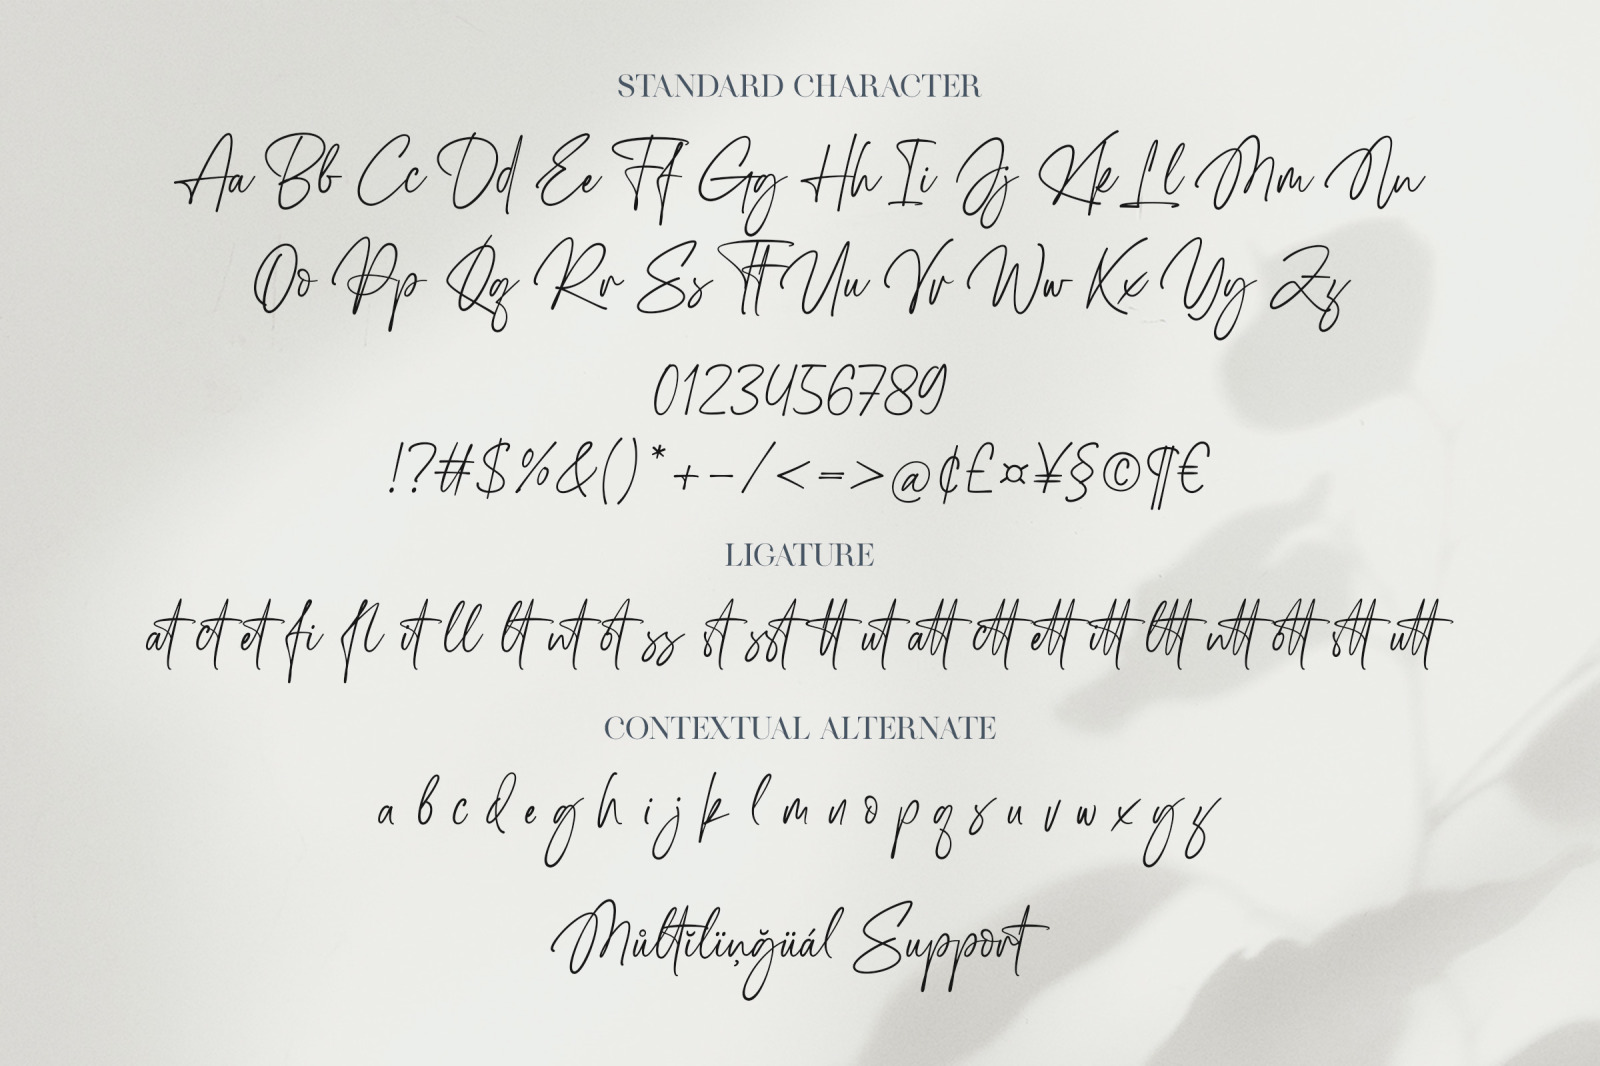 STANDARD CHARACTER
Aa Bb Cc Dd Ee Ff Gg Hh Ii Jj Kk Ll Mm Nn
Oo Pp Qq Rr Ss Tt Uu Vv Ww Xx Yy Zz
0123456789
!?#$%&()*+-/<=>@¢£¤¥§©¶€
LIGATURE
at ct et fi fl it ll lt nt ot ss st sst tt ut att ctt ett itt ltt ntt ott stt utt
CONTEXTUAL ALTERNATE
a b c d e g h i j k l m n o p q s u v w x y z
Můltĭlïņğüál Support